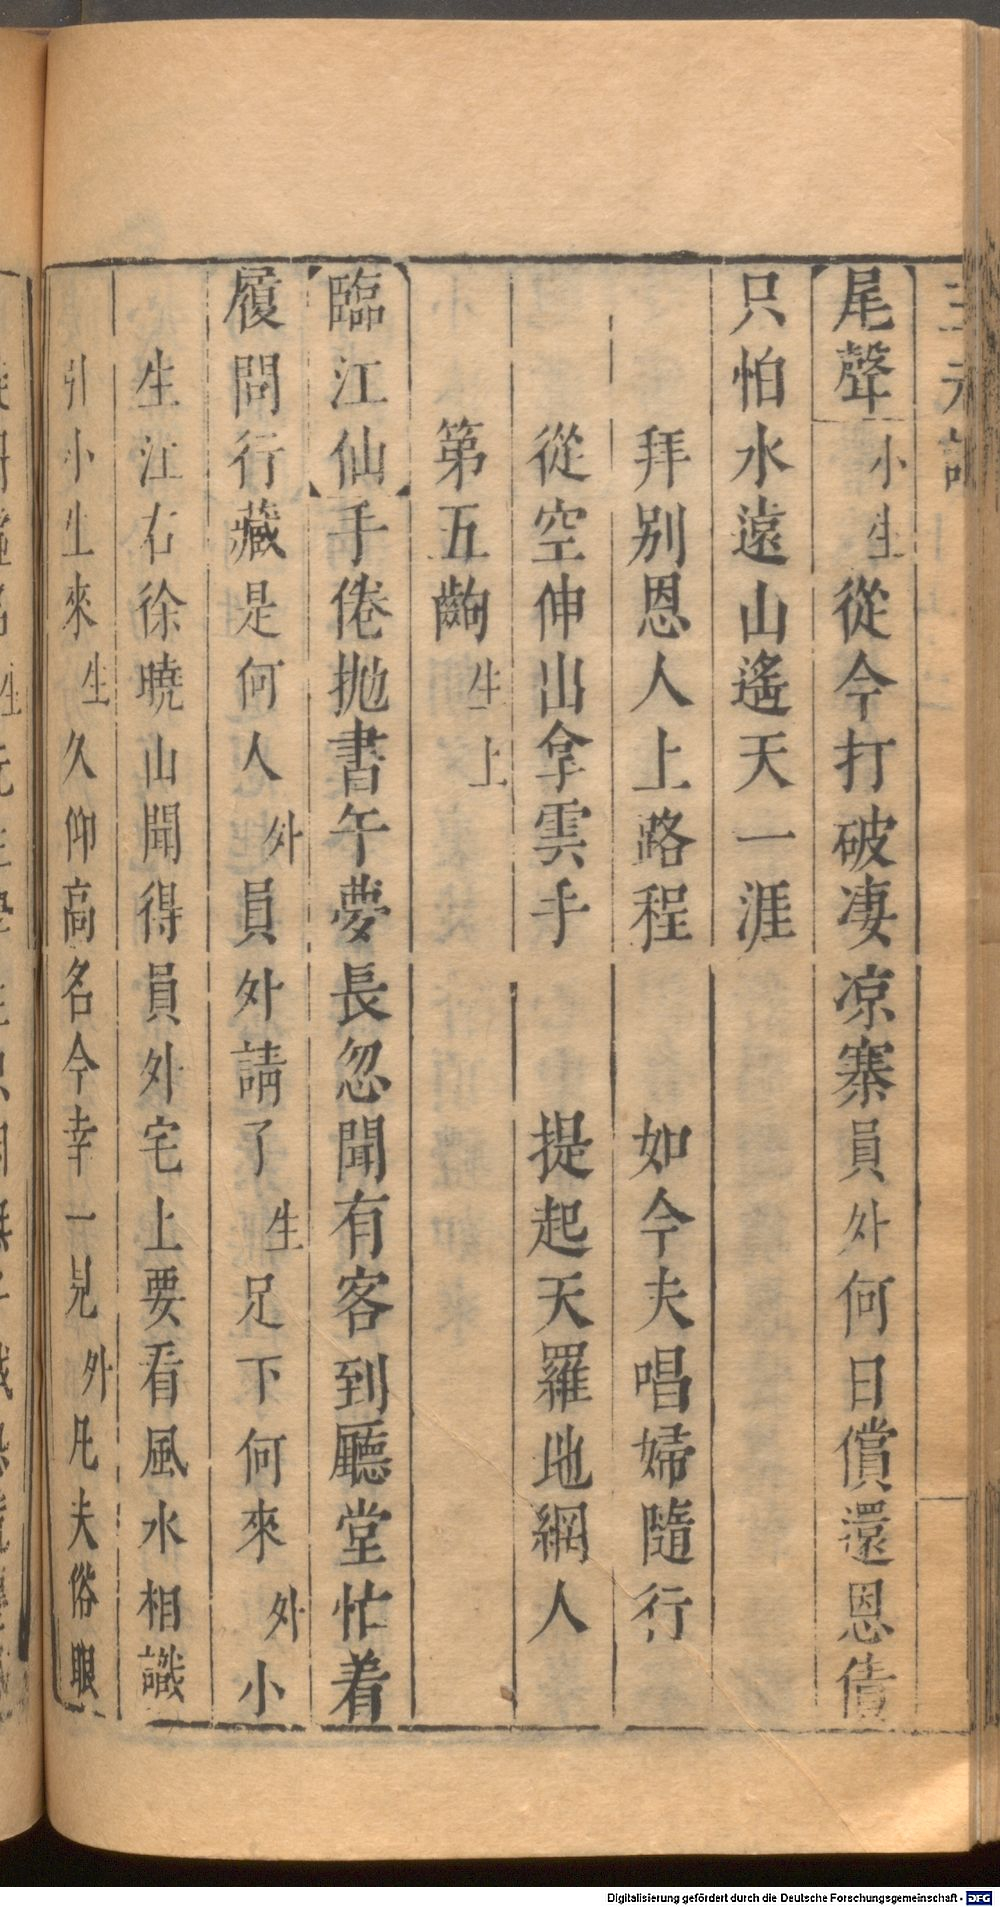 尾聲 小生 從今打破凄凉寨員外何日償還恩債
只怕水遠山遙天一涯
拜别恩人上路程 如今夫唱婦隨行
從空伸出拿雲手 提起天羅地網人
第五齣 生上
臨江仙 手倦拋書午夢長忽聞有客到廳堂忙着
履問行藏是何人 外 員外請了 生 足下何來 外 小
生江右徐曉山聞得員外宅上要看風水相識
引小生來 生 久仰高名今幸一見 外 凡夫俗眼
Digitalisierung gefördert durch die Deutsche Forschungsgemeinschaft - DFG